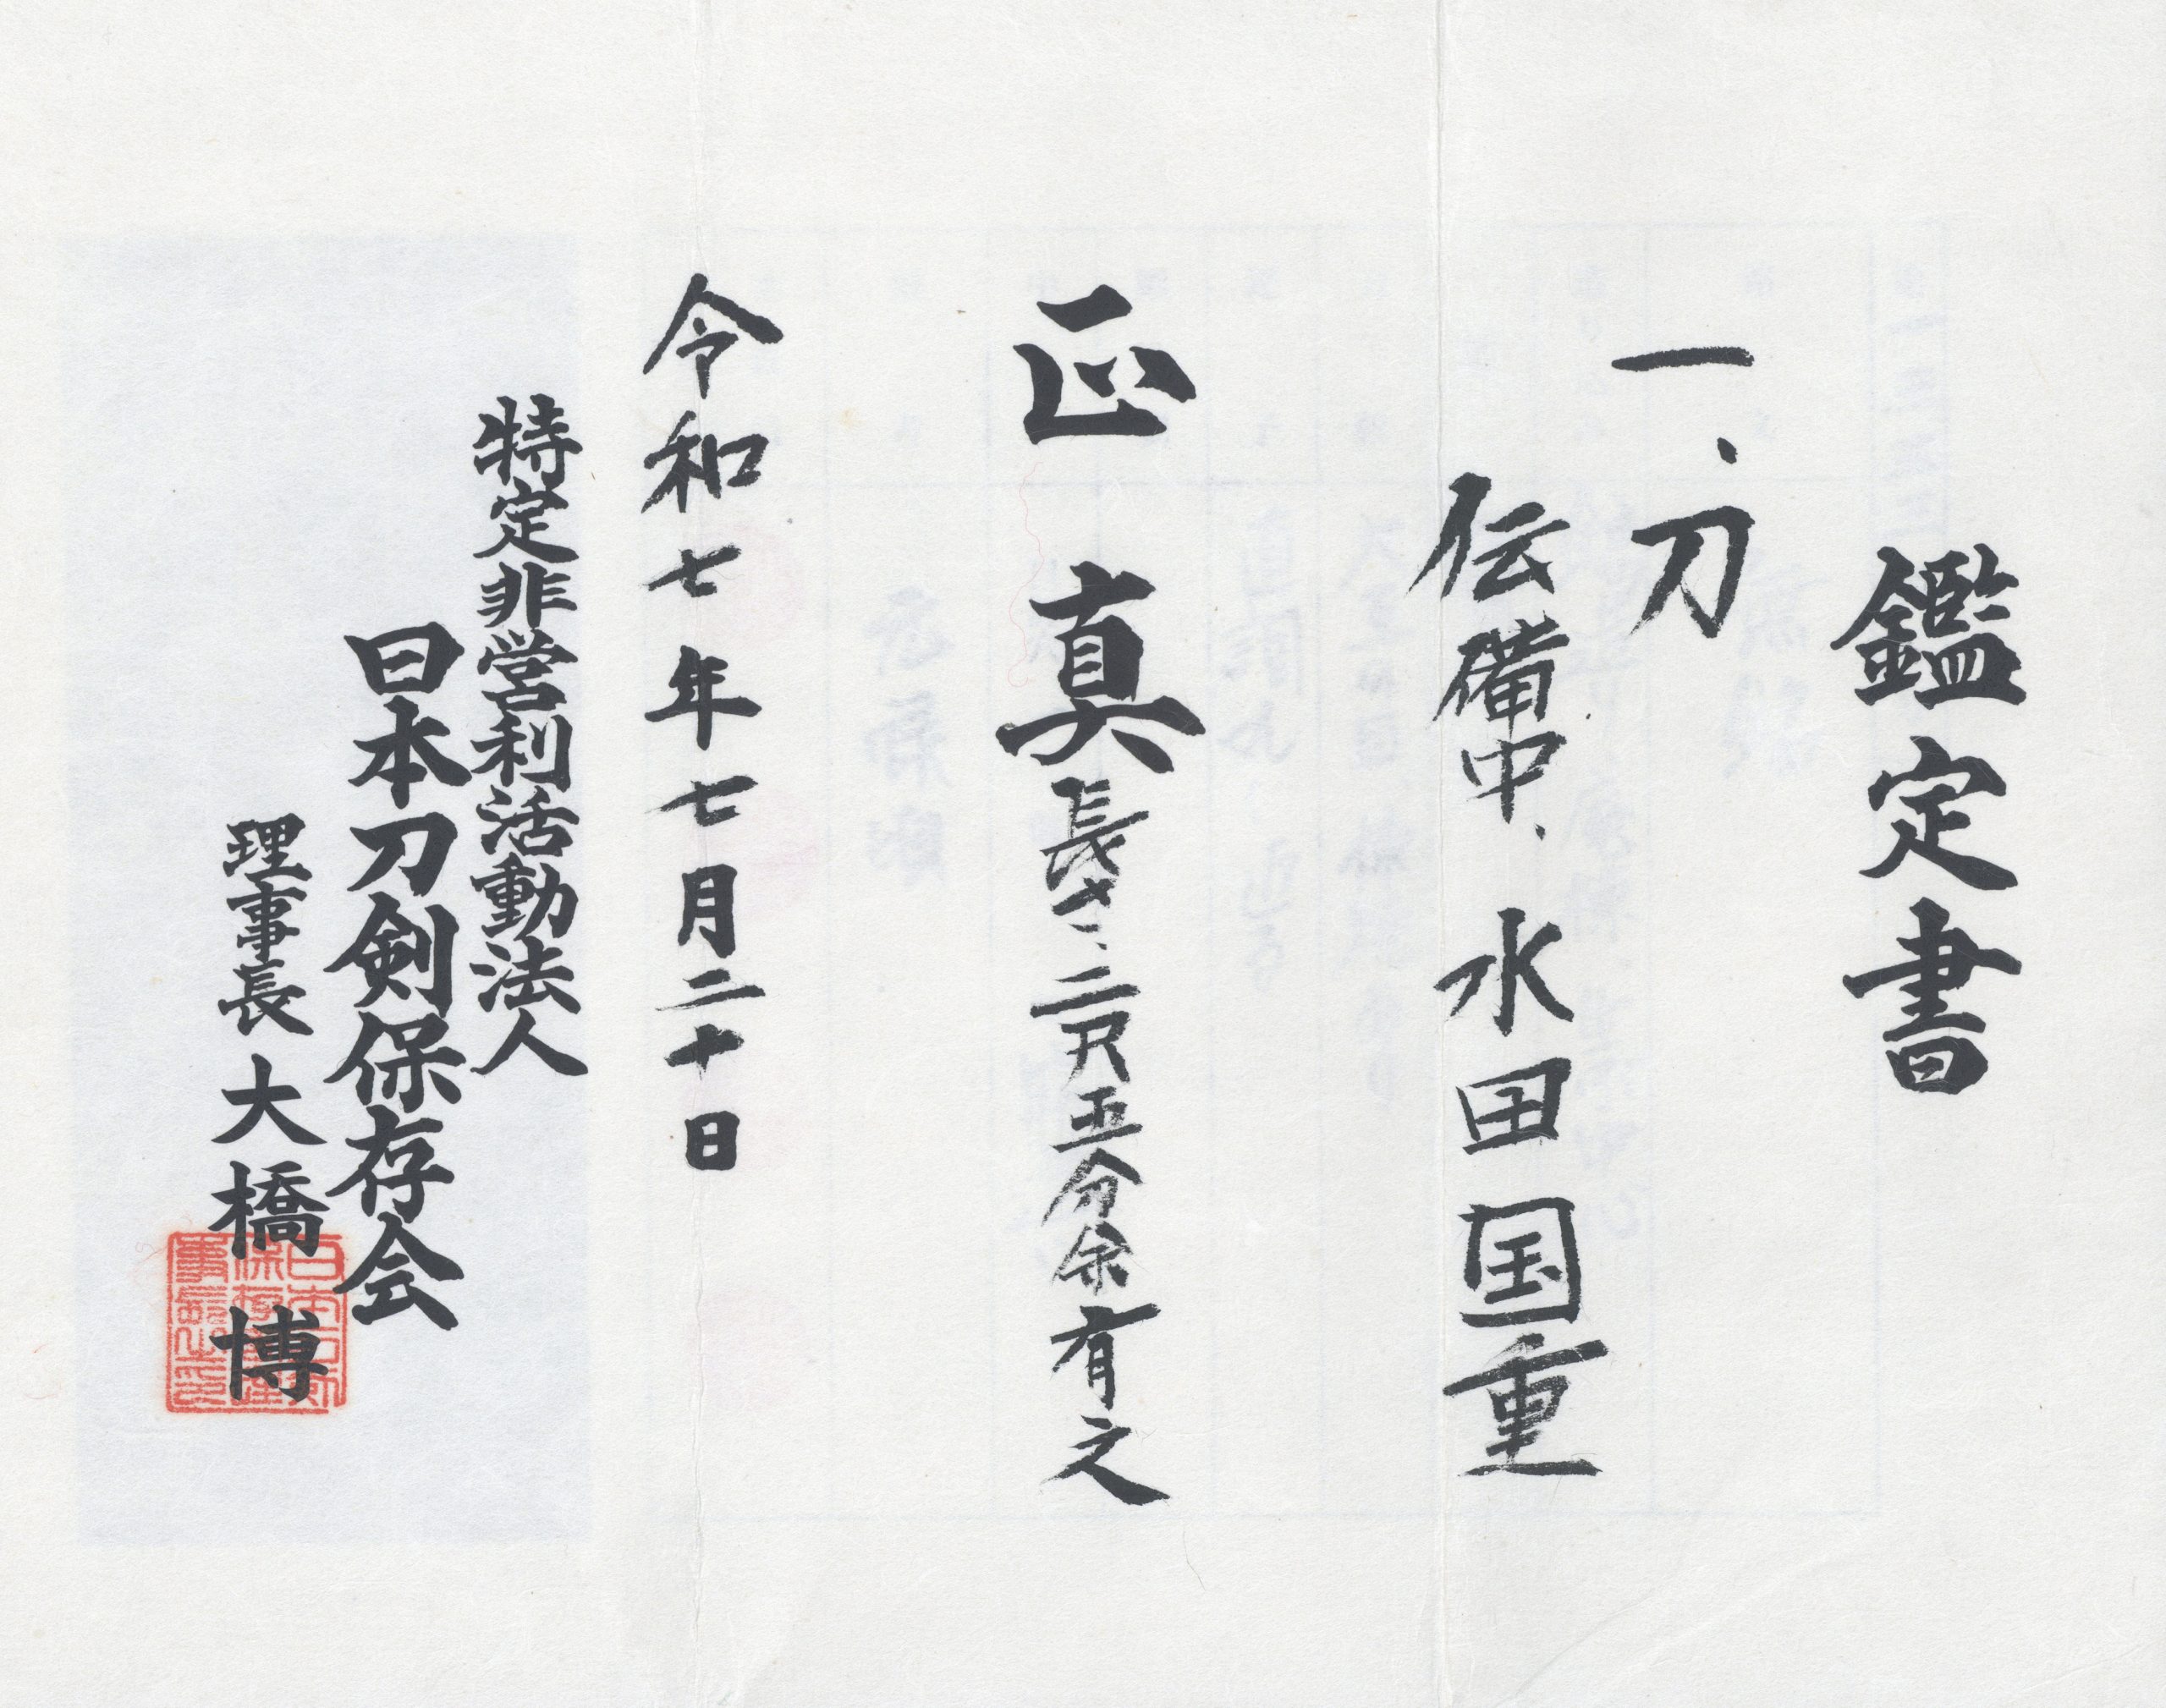 鑑定書
一、刀
伝備中、水田国重
正真
長さ、二尺五分余有之
令和七年七月二十日
特定非営利活動法人
日本刀剣保存会
理事長 大橋博